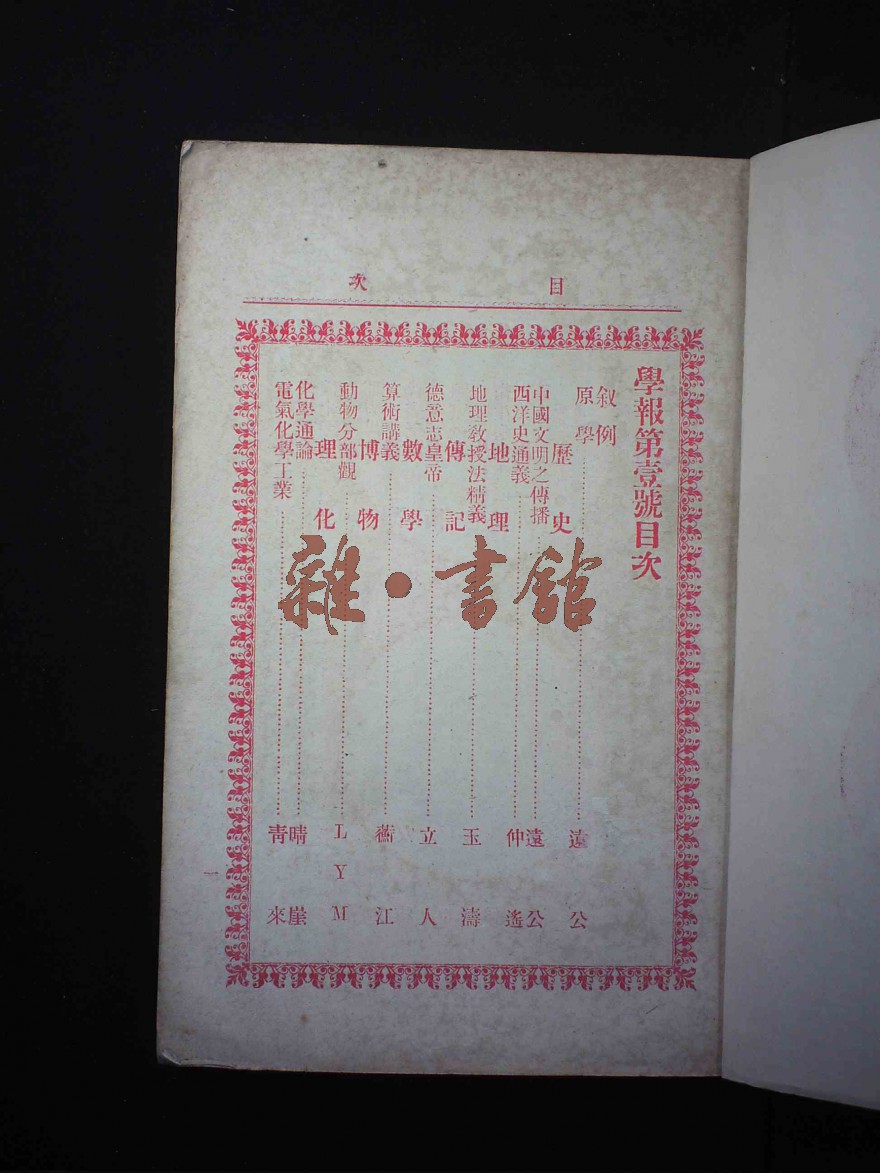 目次
學報第壹號目次
叙例
原學 遠公
歷史
中國文明之傳播 遠公
西洋史通義 仲遙
地理
地理敎授法精義 玉濤
傳記
德意志皇帝 立人
數學
算術講義 蘅江
博物
動物分部觀 LYM
理化
化學通論 晴崖
電氣化學工業 靑來
雜·書館